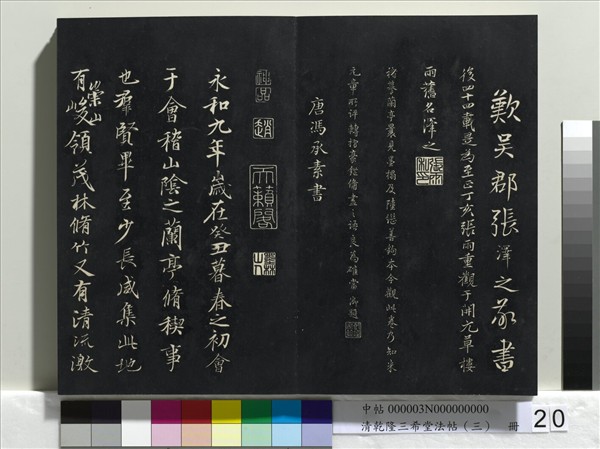 歎吳郡張澤之敬書
後四十四載是為至正丁亥張雨重觀于開元草樓
雨舊名澤之
諸摹蘭亭叢見墨搨及陸繼善鉤本今觀此卷乃知米
元章所評轉摺豪鋩備盡之語良為確當 御題
唐馮承素書
神品 趙 天籟閣
永和九年歲在癸丑暮春之初會
于會稽山陰之蘭亭脩稧事
也羣賢畢至少長咸集此地
有崇山峻領茂林脩竹又有清流激
中帖 000003N000000000
清乾隆三希堂法帖（三） 冊 20